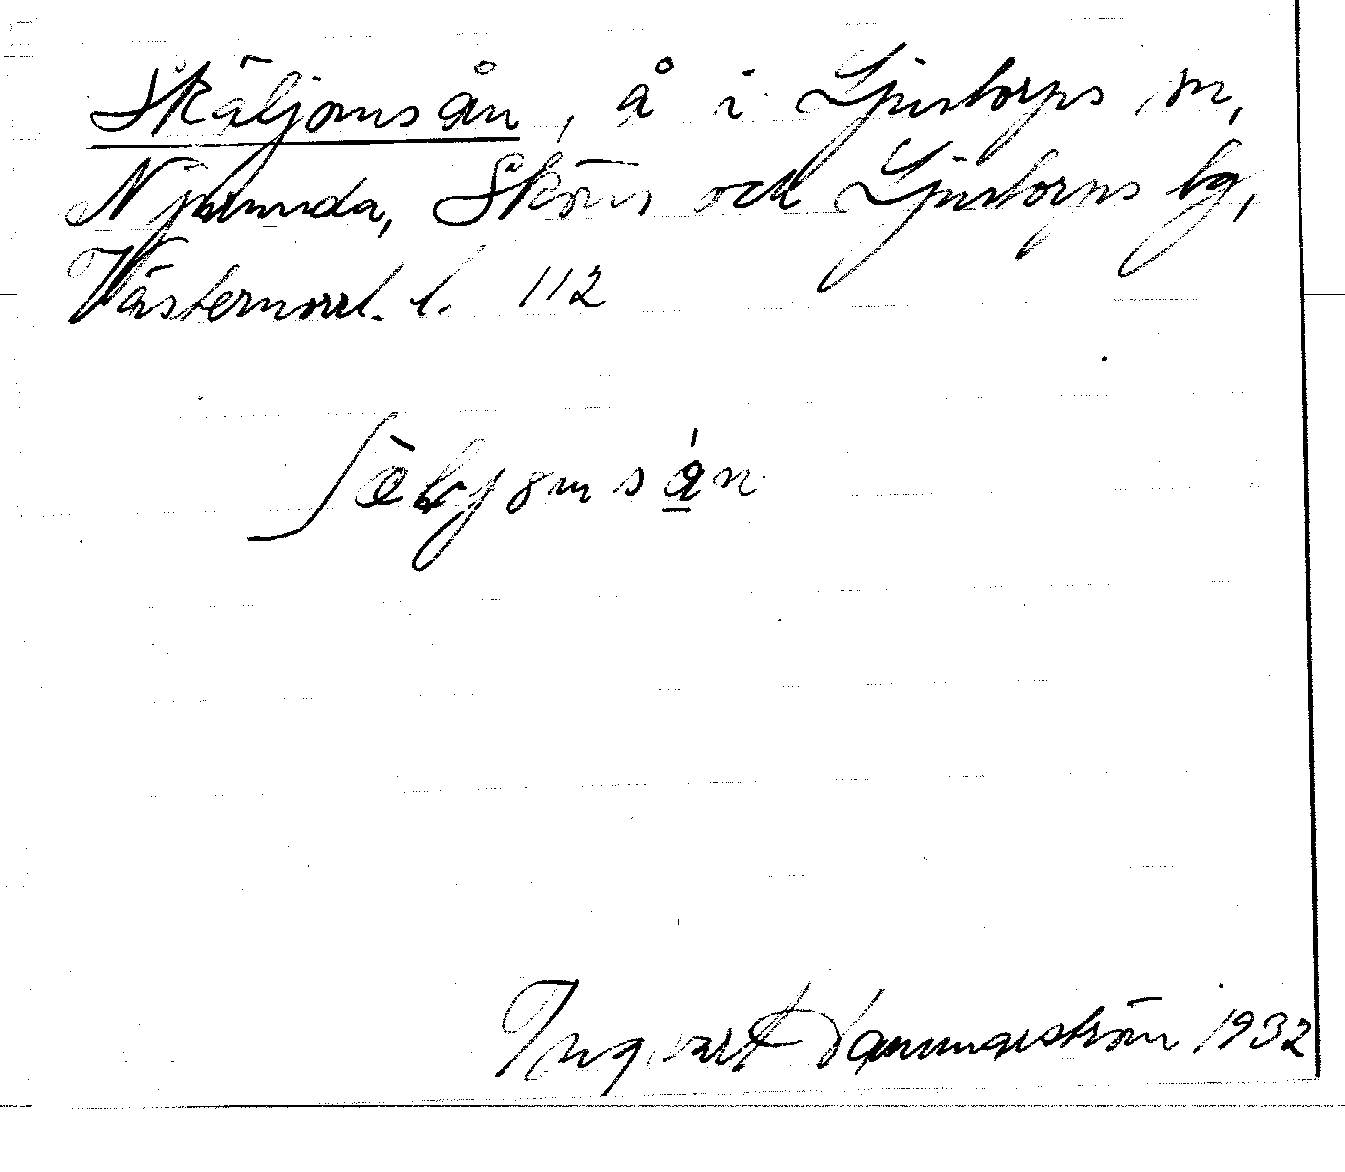 Skäljomsån, å i Ljustorps sn,
Njurunda, Sköns och Ljustorps tg,
Västernorrl. l. 112
ʃèljomsán
Ingvart Hammarström 1932